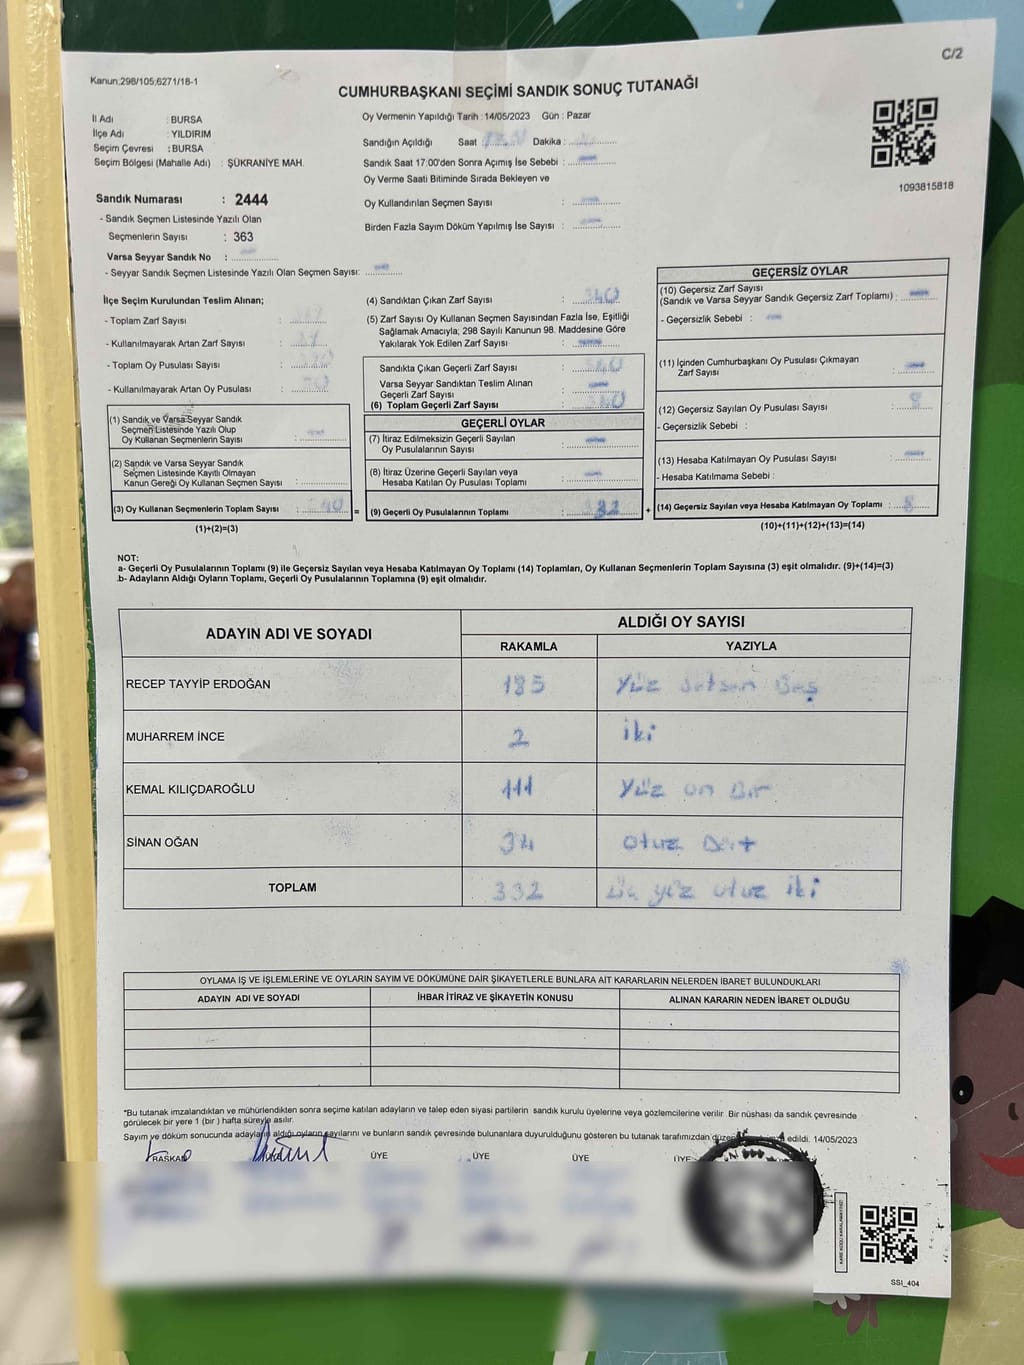 C/2
Kanun;298/105;6271/18-1
CUMHURBAŞKANI SEÇİMİ SANDIK SONUÇ TUTANAĞI
İl Adı : BURSA
İlçe Adı : YILDIRIM
Seçim Çevresi : BURSA
Seçim Bölgesi (Mahalle Adı) : ŞÜKRANİYE MAH.
Oy Vermenin Yapıldığı Tarih : 14/05/2023 Gün : Pazar
Sandığın Açıldığı Saat Dakika :
Sandık Saat 17:00'den Sonra Açımış İse Sebebi :
Oy Verme Saati Bitiminde Sırada Bekleyen ve
Oy Kullandırılan Seçmen Sayısı :
Birden Fazla Sayım Döküm Yapılmış İse Sayısı :
1093815818
Sandık Numarası : 2444
- Sandık Seçmen Listesinde Yazılı Olan
Seçmenlerin Sayısı : 363
Varsa Seyyar Sandık No :
- Seyyar Sandık Seçmen Listesinde Yazılı Olan Seçmen Sayısı:
İlçe Seçim Kurulundan Teslim Alınan;
- Toplam Zarf Sayısı :
- Kullanılmayarak Artan Zarf Sayısı :
- Toplam Oy Pusulası Sayısı :
- Kullanılmayarak Artan Oy Pusulası :
(1) Sandık ve Varsa Seyyar Sandık
Seçmen Listesinde Yazılı Olup
Oy Kullanan Seçmenlerin Sayısı :
(2) Sandık ve Varsa Seyyar Sandık
Seçmen Listesinde Kayıtlı Olmayan
Kanun Gereği Oy Kullanan Seçmen Sayısı :
(3) Oy Kullanan Seçmenlerin Toplam Sayısı : 340 =
(1)+(2)=(3)
(4) Sandıktan Çıkan Zarf Sayısı : 340
(5) Zarf Sayısı Oy Kullanan Seçmen Sayısından Fazla İse, Eşitliği
Sağlamak Amacıyla; 298 Sayılı Kanunun 98. Maddesine Göre
Yakılarak Yok Edilen Zarf Sayısı :
Sandıkta Çıkan Geçerli Zarf Sayısı : 340
Varsa Seyyar Sandıktan Teslim Alınan
Geçerli Zarf Sayısı :
(6) Toplam Geçerli Zarf Sayısı : 340
GEÇERLİ OYLAR
(7) İtiraz Edilmeksizin Geçerli Sayılan
Oy Pusulalarının Sayısı :
(8) İtiraz Üzerine Geçerli Sayılan veya
Hesaba Katılan Oy Pusulaları Toplamı :
(9) Geçerli Oy Pusulalarının Toplamı : 332 +
GEÇERSİZ OYLAR
(10) Geçersiz Zarf Sayısı
(Sandık ve Varsa Seyyar Sandık Geçersiz Zarf Toplamı) :
- Geçersizlik Sebebi :
(11) İçinden Cumhurbaşkanı Oy Pusulası Çıkmayan
Zarf Sayısı :
(12) Geçersiz Sayılan Oy Pusulası Sayısı : 8
- Geçersizlik Sebebi :
(13) Hesaba Katılmayan Oy Pusulası Sayısı :
- Hesaba Katılmama Sebebi :
(14) Geçersiz Sayılan veya Hesaba Katılmayan Oy Toplamı : 8
(10)+(11)+(12)+(13)=(14)
NOT:
a- Geçerli Oy Pusulalarının Toplamı (9) ile Geçersiz Sayılan veya Hesaba Katılmayan Oy Toplamı (14) Toplamları, Oy Kullanan Seçmenlerin Toplam Sayısına (3) eşit olmalıdır. (9)+(14)=(3)
b- Adayların Aldığı Oyların Toplamı, Geçerli Oy Pusulalarının Toplamına (9) eşit olmalıdır.
ADAYIN ADI VE SOYADI ALDIĞI OY SAYISI
RAKAMLA YAZIYLA
RECEP TAYYİP ERDOĞAN 185 Yüz seksen Beş
MUHARREM İNCE 2 iki
KEMAL KILIÇDAROĞLU 111 Yüz on Bir
SİNAN OĞAN 34 otuz Dört
TOPLAM 332 Üç yüz otuz iki
OYLAMA İŞ VE İŞLEMLERİNE VE OYLARIN SAYIM VE DÖKÜMÜNE DAİR ŞİKAYETLERLE BUNLARA AİT KARARLARIN NELERDEN İBARET BULUNDUKLARI
ADAYIN ADI VE SOYADI İHBAR İTİRAZ VE ŞİKAYETİN KONUSU ALINAN KARARIN NEDEN İBARET OLDUĞU
*Bu tutanak imzalandıktan ve mühürlendikten sonra seçime katılan adayların ve talep eden siyasi partilerin sandık kurulu üyelerine veya gözlemcilerine verilir. Bir nüshası da sandık çevresinde
görülecek bir yere 1 (bir ) hafta süreyle asılır.
Sayım ve döküm sonucunda adayların aldığı oyların sayılarını ve bunların sandık çevresinde bulunanlara duyurulduğunu gösteren bu tutanak tarafımızdan edildi. 14/05/2023
BAŞKAN ÜYE ÜYE ÜYE ÜYE
SSI_404